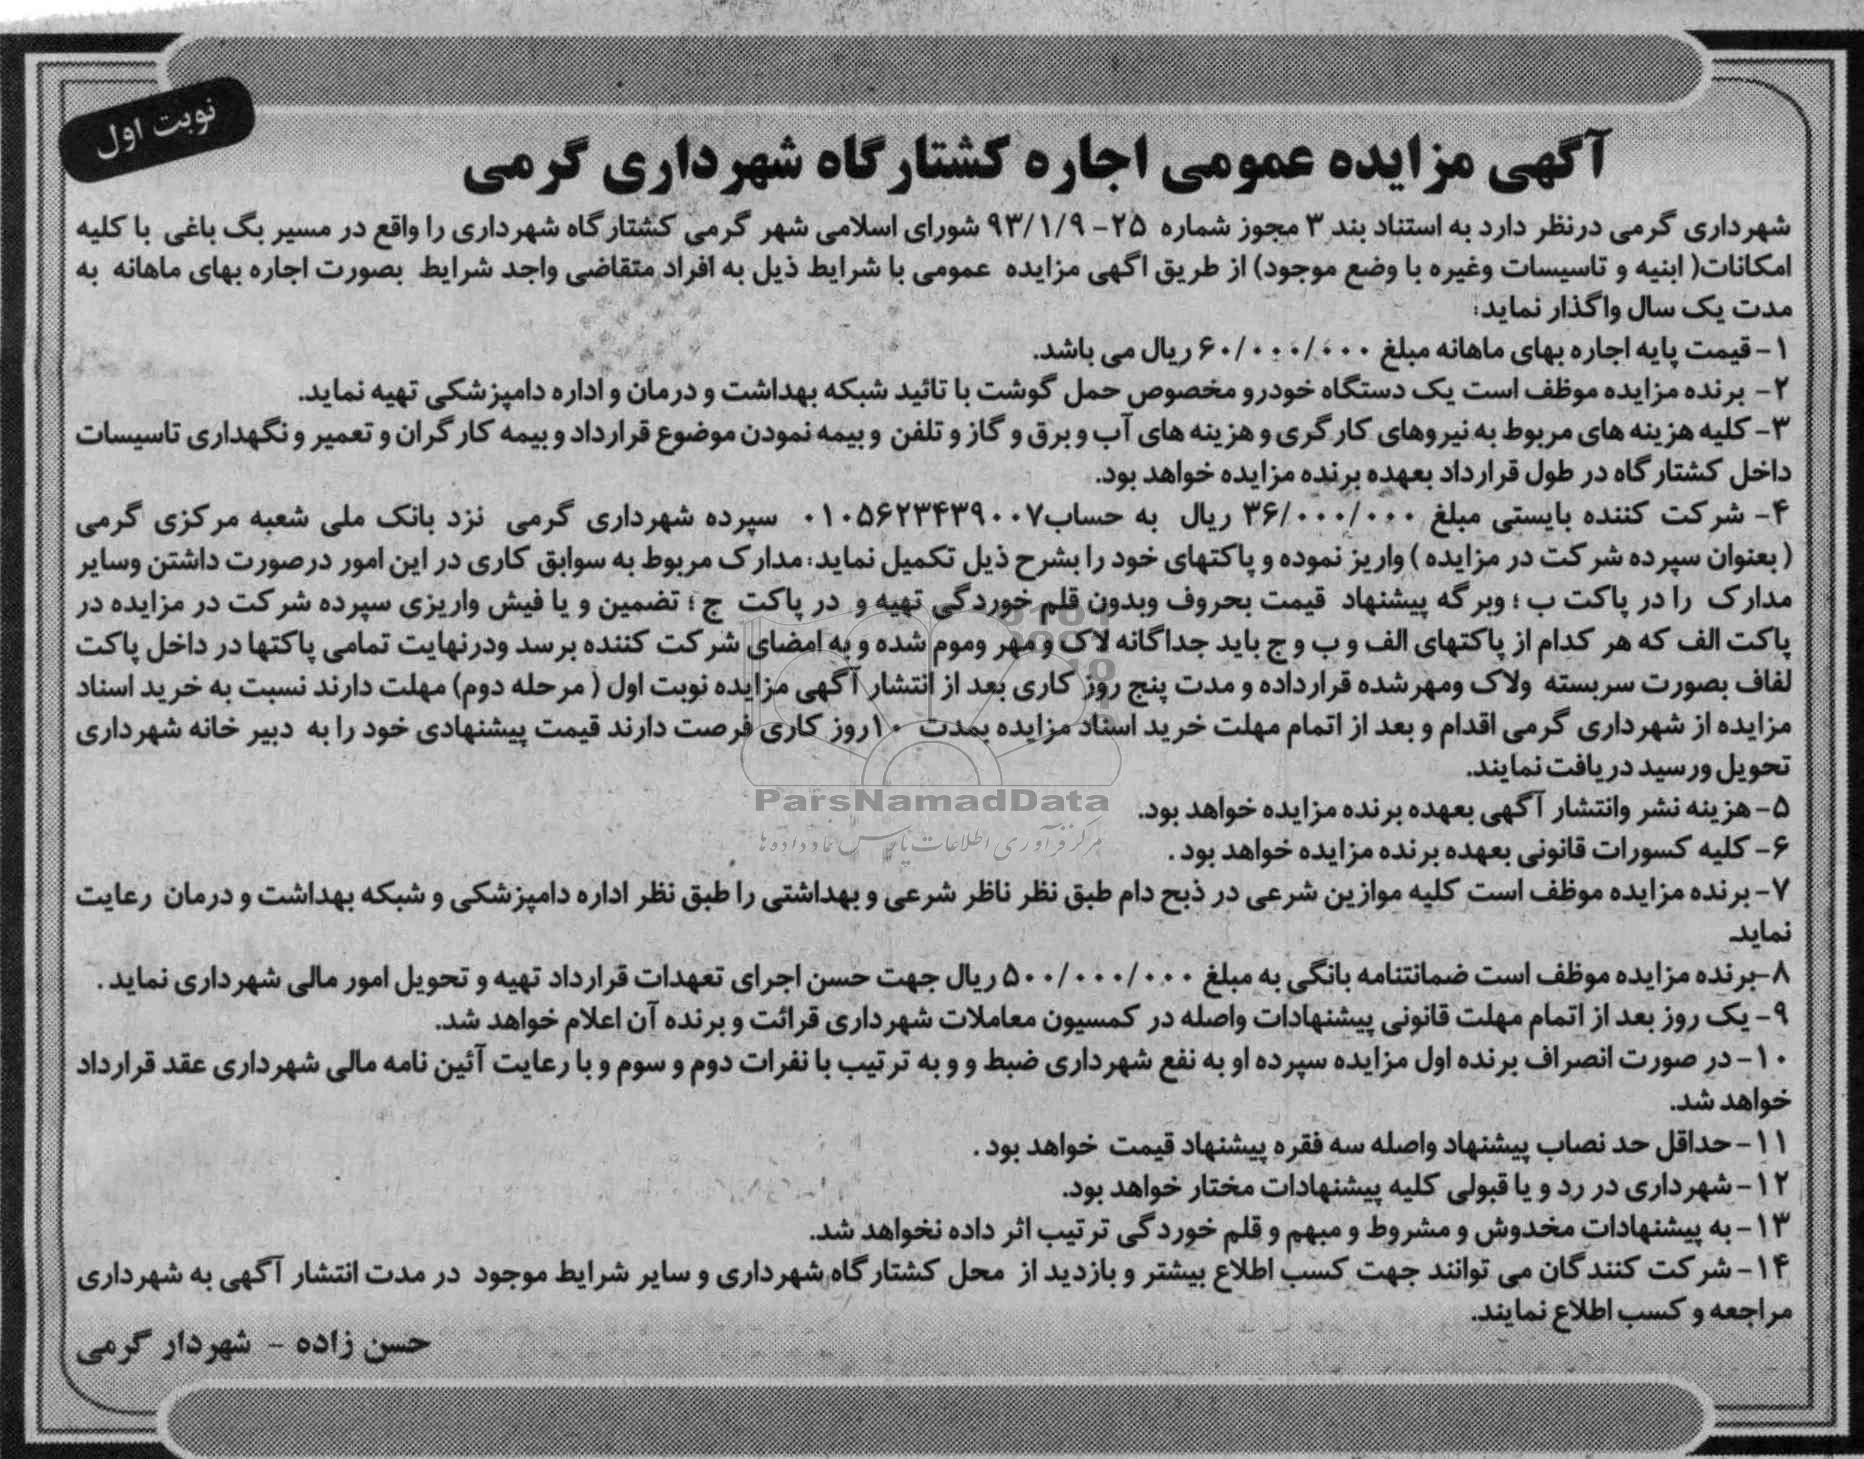 نوبت اول
آگهی مزایده عمومی اجاره کشتارگاه شهرداری گرمی
شهرداری گرمی درنظر دارد به استناد بند ۳ مجوز شماره ۲۵- ۹۳/۱/۹ شورای اسلامی شهر گرمی کشتارگاه شهرداری را واقع در مسیر بگ باغی با کلیه
امکانات( ابنیه و تاسیسات وغیره با وضع موجود) از طریق اگهی مزایده عمومی با شرایط ذیل به افراد متقاضی واجد شرایط بصورت اجاره بهای ماهانه به
مدت یک سال واگذار نماید:
۱- قیمت پایه اجاره بهای ماهانه مبلغ ۶۰/۰۰۰/۰۰۰ ریال می باشد.
۲- برنده مزایده موظف است یک دستگاه خودرو مخصوص حمل گوشت با تائید شبکه بهداشت و درمان و اداره دامپزشکی تهیه نماید.
۳- کلیه هزینه های مربوط به نیروهای کارگری و هزینه های آب و برق و گاز و تلفن و بیمه نمودن موضوع قرارداد و بیمه کارگران و تعمیر و نگهداری تاسیسات
داخل کشتارگاه در طول قرارداد بعهده برنده مزایده خواهد بود.
۴- شرکت کننده بایستی مبلغ ۳۶/۰۰۰/۰۰۰ ریال به حساب۰۱۰۵۶۲۳۴۳۹۰۰۷ سپرده شهرداری گرمی نزد بانک ملی شعبه مرکزی گرمی
( بعنوان سپرده شرکت در مزایده ) واریز نموده و پاکتهای خود را بشرح ذیل تکمیل نماید: مدارک مربوط به سوابق کاری در این امور درصورت داشتن وسایر
مدارک را در پاکت ب ؛ وبرگه پیشنهاد قیمت بحروف وبدون قلم خوردگی تهیه و در پاکت ج ؛ تضمین و یا فیش واریزی سپرده شرکت در مزایده در
پاکت الف که هر کدام از پاکتهای الف و ب و ج باید جداگانه لاک و مهر وموم شده و به امضای شرکت کننده برسد ودرنهایت تمامی پاکتها در داخل پاکت
لفاف بصورت سربسته ولاک ومهرشده قرارداده و مدت پنج روز کاری بعد از انتشار آگهی مزایده نوبت اول ( مرحله دوم) مهلت دارند نسبت به خرید اسناد
مزایده از شهرداری گرمی اقدام و بعد از اتمام مهلت خرید اسناد مزایده بمدت ۱۰روز کاری فرصت دارند قیمت پیشنهادی خود را به دبیر خانه شهرداری
تحویل ورسید دریافت نمایند.
ParsNamadData
مرکز فرآوری اطلاعات پارس نماد داده ها
۵- هزینه نشر وانتشار آگهی بعهده برنده مزایده خواهد بود.
۶- کلیه کسورات قانونی بعهده برنده مزایده خواهد بود .
۷- برنده مزایده موظف است کلیه موازین شرعی در ذبح دام طبق نظر ناظر شرعی و بهداشتی را طبق نظر اداره دامپزشکی و شبکه بهداشت و درمان رعایت
نماید.
۸-برنده مزایده موظف است ضمانتنامه بانگی به مبلغ ۵۰۰/۰۰۰/۰۰۰ ریال جهت حسن اجرای تعهدات قرارداد تهیه و تحویل امور مالی شهرداری نماید .
۹- یک روز بعد از اتمام مهلت قانونی پیشنهادات واصله در کمسیون معاملات شهرداری قرائت و برنده آن اعلام خواهد شد.
۱۰- در صورت انصراف برنده اول مزایده سپرده او به نفع شهرداری ضبط و و به ترتیب با نفرات دوم و سوم و با رعایت آئین نامه مالی شهرداری عقد قرارداد
خواهد شد.
۱۱- حداقل حد نصاب پیشنهاد واصله سه فقره پیشنهاد قیمت خواهد بود .
۱۲- شهرداری در رد و یا قبولی کلیه پیشنهادات مختار خواهد بود.
۱۳- به پیشنهادات مخدوش و مشروط و مبهم و قلم خوردگی ترتیب اثر داده نخواهد شد.
۱۴- شرکت کنندگان می توانند جهت کسب اطلاع بیشتر و بازدید از محل کشتارگاه شهرداری و سایر شرایط موجود در مدت انتشار آگهی به شهرداری
مراجعه و کسب اطلاع نمایند.
حسن زاده - شهردار گرمی